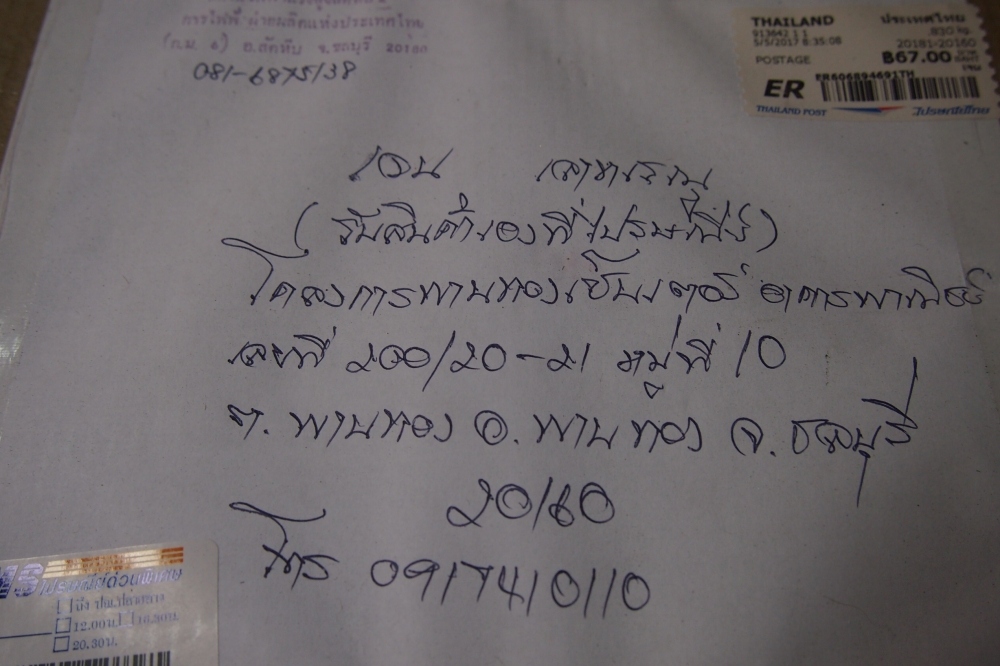 การไฟฟ้าฝ่ายผลิตแห่งประเทศไทย
(ก.ม. 6) อ.สัตหีบ จ.ชลบุรี 20180
081-6875138
THAILAND ประเทศไทย
913642 1 1 .830 kg.
5/5/2017 8:35:08 20181-20160
POSTAGE ฿67.00 บาท BAHT
ER ER606894691TH
THAILAND POST ไปรษณีย์ไทย
(รับสินค้าเองที่ไปรษณีย์)
โครงการพานทองเซ็นเตอร์ อาคารพาณิชย์
เลขที่ 200/20-21 หมู่ที่ 10
ต. พานทอง อ. พานทอง จ. ชลบุรี
20160
โทร 0917410110
ไปรษณีย์ด่วนพิเศษ
12.00น. 16.30น.
20.30น.